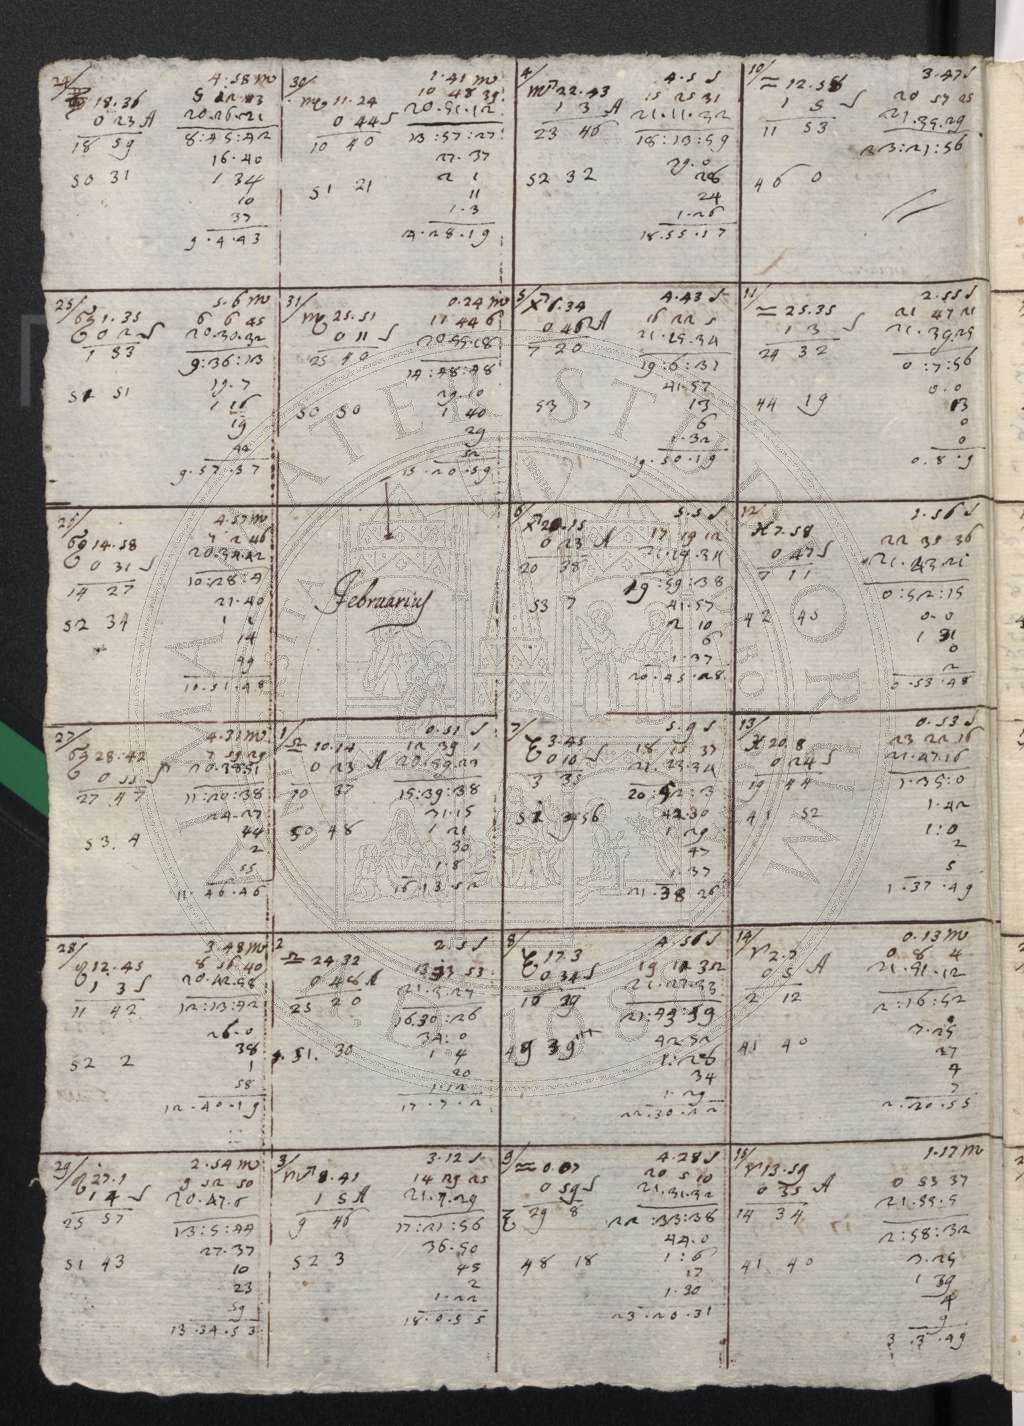 24/ 4.58 m
18.36
0 23 A 20.26.21
18 59 8:45:42
16.40
50 31 1 34
10
37
9.4.43
25/ 5.6 m
♑ 1.35 6 6 45
0 2 S 20.30.32
1 33 9:36:13
19.7
51 1 16
19
42
9.57.37
4.57 m
♑ 14.58
0 31 S 20.34.42
14 27 10:28:4
21.40
52 34
14
49
10.51.48
27/ 4.31 m
♑ 28.42 7 59 29
0 55 S 20.38.51
27 47 11:20:38
24.27
53.4 44
2
55
11.46.46
28/ 3.48 m
12.45 8 56 40
1 3 S 20.42.58
11 42 12:13:42
26.0
52 2 38
1
58
12.40.19
29/ 2.54 m
27.1 9 52 50
1 4 S 20.47.6
25 57 13:5:44
27.37
51 43 10
23
59
13.34.53
30/ 1.41 m
♏ 11.24 10 48 39
0 44 S 20.51.12
10 40 13:57:27
27.37
51 21 2 1
11
1.3
14.28.19
31/ 0.24 m
♏ 25.51 11 44 6
0 11 S 20.55.18
25 40 14:48:48
29.10
50 50 1 40
29
52
15.20.59
Februarius
1/ 0.51 S
♎ 10.14 12 39 1
0 23 A 20.59.23
10 37 15:39:38
31.15
50 48 1 21
30
1.8
16.13.52
2 2.5 S
♎ 24.32 13 33 53
0 48 A 21.3.27
25 20 16:30:26
34:0
51.30 1 4
20
1.12
17.7.2
3/ 3.12 S
8.41 14 29 25
1 5 A 21.7.29
9 46 17:21:56
36.50
52 3 45
2
1.22
18.0.55
4/ 4.5 S
22.43 15 25 31
1 3 A 21.11.32
23 46 18:13:59
39.0
52 32 26
24
1.26
18.55.17
5/ 4.43 S
♐ 6.34 16 22 5
0 46 A 21.15.34
7 20 19:6:31
41.57
53 7 13
6
1.32
19.50.19
6/ 5.5 S
♐ 20.15 17 19 12
0 23 A 21.19.34
20 38 19:59:38
53 7 41.57
2 10
6
1.37
20.45.28
7/ 5.9 S
3.45 18 15 37
0 10 S 21.23.34
3 35
42.30
1.29
47
1.37
21.38.26
8/ 4.56 S
17.3
0 34 S 21.27.33
16 29 21:43:59
42 52
49 39 1:26
34
1.29
22.30.22
9/ 4.28 S
♒ 0.07 20 5 10
0 59 S 21.31.32
29 8 22:33:38
44.0
48 18 1:6
17
1.30
23.20.31
10/ 3.47 S
♒ 12.58 20 57 25
1 5 S 21.35.29
11 53 23:21:56
46 0
11/ 2.55 S
♒ 25.35 21 47 21
1 3 S 21.39.25
24 32 0:7:56
0.0
44 19 13
0
0
0.8.9
12 1.56 S
♓ 7.58 22 35 36
0 47 S 21.43.21
7 11 0:52:15
42 45 0.0
1 31
0
2
0.53.48
13/ 0.53 S
♓ 20.8 23 22 16
0 24 S 21.47.16
19 44 1:35:0
1.42
41 52 1:0
2
5
1.37.49
14/ 0.13 m
♈ 2.7 0 8 4
0 5 A 21.51.12
2 12 2:16:52
3.25
41 40 27
4
7
2.20.55
15/ 1.17 m
♈ 13.59 0 53 37
0 35 A 21.55.5
14 34 2:58:32
3.25
41 40 1 39
4
9
3.3.49